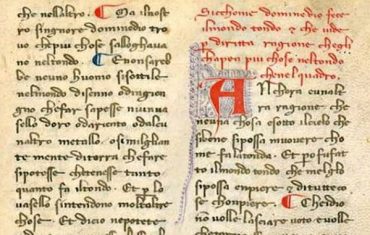 che nellaltro. Ma ilnost
ro singnore domenedio tro
vo che piu chose salloghava
no neltondo. Enonsareb
be neuno huomo sisottile
nelmondo disenno odingien
gno che far sapesse niunva
sello doro odariento odalcu
naltro metallo. osimigliã
te mente diterra che fare
sipotesse chtenesse tanto
quanto fa iltondo. Et p lo
vasello sintendono molte altre
chose. Et dicio nepotete
Siccheome domenedio fece
ilmondo tondo et che vide
p diritta ragione chegli
chapea piu chose neltondo
che nel quadro.
Alchora evnalt
ra ragione che
neuna chosa osotto ilcielo che
sibene sipossa muovere cho
me fa latonda. Et po fu fat
to ilmondo tondo che meglio
sipossa enpiere et ditutte co
se chonpiere. Che idio
no volle lasciare voto e volle